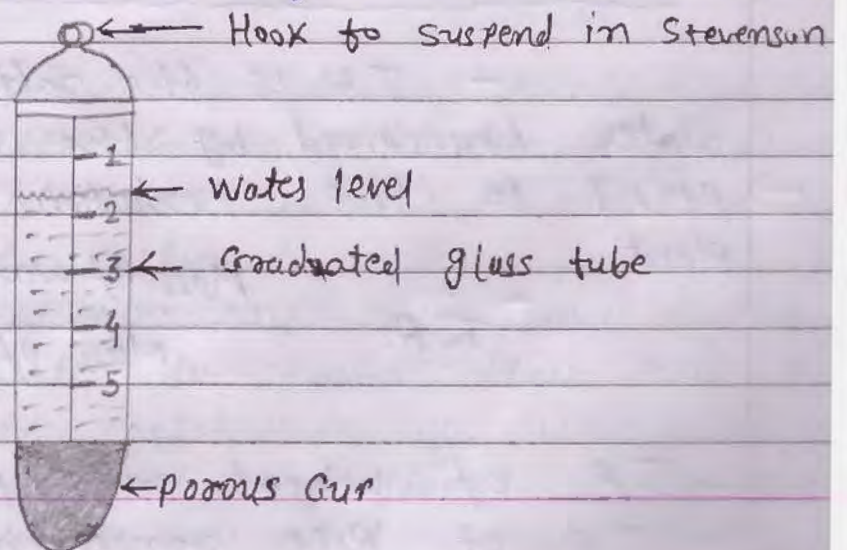 Hook to suspend in Stevenson
1
Water level
2
Graduated glass tube
3
4
5
Porous Cup